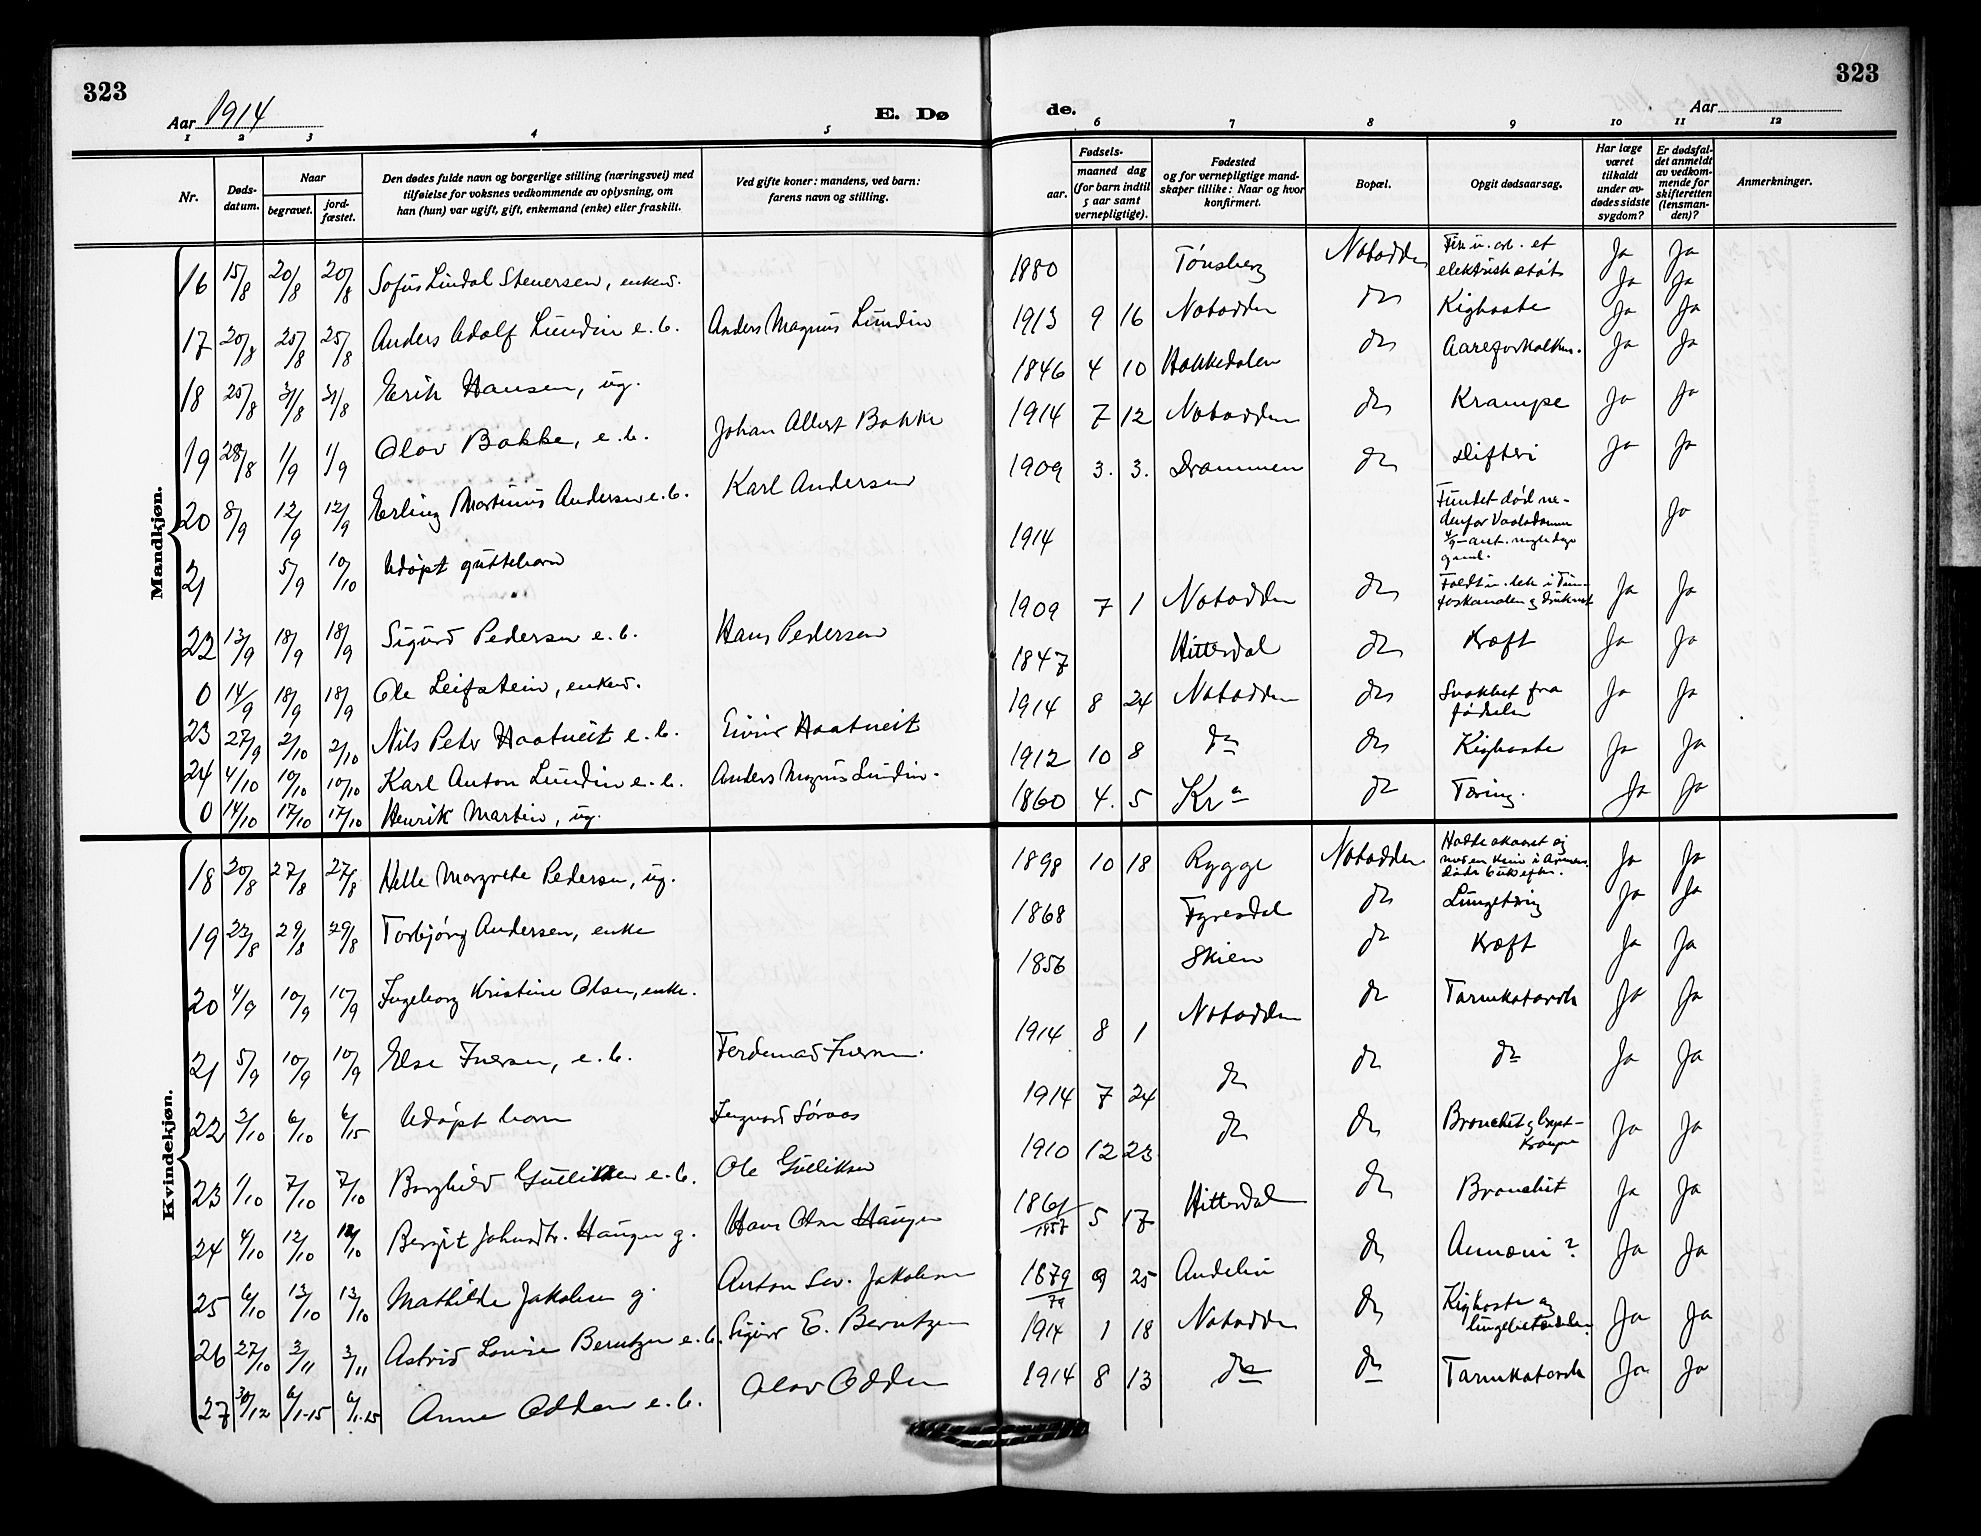 323
323
Aar 1914
E. Dø
de.
Aar
1 2 3 4 5 6 7 8 9 10 11 12
Nr.
Døds-
datum.
Naar
begravet.
jord-
fæstet.
Den dødes fulde navn og borgerlige stilling (næringsvei) med
tilføielse for voksnes vedkommende av oplysning, om
han (hun) var ugift, gift, enkemand (enke) eller fraskilt.
Ved gifte koner: mandens, ved barn:
farens navn og stilling.
Fødsels-
aar.
maaned dag
(for barn indtil
5 aar samt
vernepligtige).
Fødested
og for vernepligtige mand-
skaper tillike: Naar og hvor
konfirmert.
Bopæl.
Opgit dødsaarsag.
Har læge
været
tilkaldt
under av-
dødes sidste
sygdom?
Er dødsfal-
det anmeldt
av vedkom-
mende for
skifteretten
(lensman-
den)?
Anmerkninger.
Mandkjøn.
16 15/8 20/8 20/8 Sofus Lindal Stenersen, enkem. 1880 Tönsberg Notodden Fik u. arb. et Ja Ja
elektrisk støt Ja Ja
17 20/8 25/8 25/8 Anders Adolf Lundin e. b. Anders Magnus Lundin 1913 9 16 Notodden do Kighoste Ja Ja
18 25/8 31/8 31/8 Erik Hansen, ug. 1846 4 10 Hakkedalen do Aareforkalkn. Ja Ja
19 28/8 1/9 1/9 Olav Bakke, e. b. Johan Albert Bakke 1914 7 12 Notodden do Krampe Ja Ja
20 8/9 12/9 12/9 Erling Martinus Andersen e. b. Karl Andersen 1909 3. 3. Drammen do Difteri Ja Ja
21 5/9 10/10 Udøpt guttebarn 1914 Fundet död ne-
denfor
4/9 ant. nogle dage
gml. Ja
22 13/9 18/9 18/9 Sigurd Pedersen e. b. Hans Pedersen 1909 7 1 Notodden do Faldt u. lek i Tin-
foskanalen og druknet Ja Ja
0 14/9 18/9 18/9 Ole Leifstein, enkem. 1847 Hitterdal do Kræft Ja Ja
23 27/9 2/10 2/10 Nils Peter Haatveit e. b. Eivind Haatveit 1914 8 24 Notodden do Svakhet fra
fødselen Ja Ja
24 4/10 10/10 10/10 Karl Anton Lundin e. b. Anders Magnus Lundin. 1912 10 8 do do Kighoste Ja Ja
0 14/10 17/10 17/10 Henrik Martin, ug. 1860 4. 5 Kra do Tæring. Ja Ja
Kvindekjøn.
18 20/8 27/8 27/8 Helle Margrete Pedersen, ug. 1898 10 18 Rygge Notodden Hadde skaaret sig
Ja Ja
19 23/8 29/8 29/8 Torbjörg Andersen, enke 1868 Fyresdal do Lungetæring Ja Ja
20 4/9 10/9 10/9 Ingeborg Kristine Olsen, enke. 1856 Skien do Kræft Ja Ja
21 5/9 10/9 10/9 Else Iversen, e. b. Ferdinand Iversen. 1914 8 1 Notodden do Tarmkatarrh Ja Ja
22 2/10 6/10 6/15 Udøpt barn Ingvard Söraas 1914 7 24 do do do Ja Ja
23 1/10 7/10 7/10 Borghild Gulliksen e. b. Ole Gulliksen 1910 12 23 do do Bronchit og
Ja Ja
24 4/10 12/10 12/10 Bergit Johnsdtr. Haugen g. Hans Olsen Haugen 1861/1857 5 17 Hitterdal do Bronchit Ja Ja
25 6/10 13/10 13/10 Mathilde Jakobsen g. Anton Sev. Jakobsen 1879/79 9 25 do Anæmi? Ja Ja
26 27/10 3/11 3/11 Astrid Lovise Berntzen e. b. Sigurd E. Berntzen 1914 1 18 Notodden do Kighoste og
lungebetændelse. Ja Ja
27 30/12 6/1-15 6/1-15 Anne Odden e. b. Olav Odden 1914 8 13 do do Tarmkatarrh Ja Ja